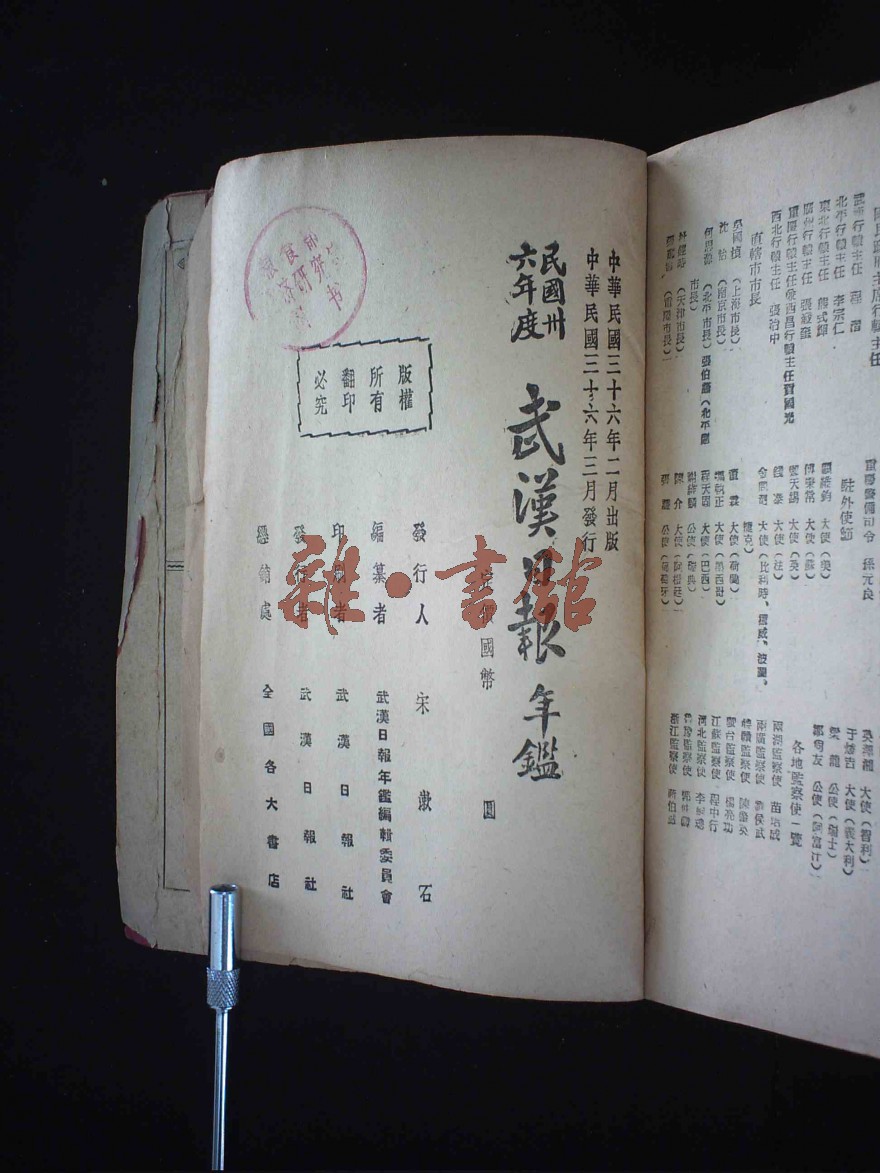 國民政府主席行轅主任
武漢行轅主任 程潛
北平行轅主任 李宗仁
東北行轅主任 熊式輝
廣州行轅主任 張發奎
重慶行轅主任兼西昌行轅主任賀國光
西北行轅主任 張治中
直轄市市長
吳國楨(上海市長)
沈怡(南京市長)
何思源(北平市長)張伯謹(北平副
市長)
(天津市長)
(重慶市長)
重慶警備司令 孫元良
駐外使節
顧維鈞 大使(美)
傅秉常 大使(蘇)
大使(英)
錢泰 大使(法)
金問泗 大使(比利時、挪威、波蘭、
捷克)
董霖 大使(荷蘭)
馮執正 大使(墨西哥)
程天固 大使(巴西)
謝維麟 公使(瑞典)
陳介 大使(阿根廷)
張謙 公使(葡萄牙)
吳澤湘 大使(智利)
于焌吉 大使(義大利)
梁龍 公使(瑞士)
鄒尚友 公使(阿富汗)
各地監察使一覽
兩湖監察使 苗培成
兩廣監察使 劉侯武
監察使
監察使 楊亮功
江蘇監察使 程中行
河北監察使 李嗣璁
監察使 郭
浙江監察使 朔伯
中華民國三十六年二月出版
中華民國三十六年三月發行
民國卅
六年度
武漢日報年鑑
定價國幣 圓
發行人 宋漱石
編纂者 武漢日報年鑑編輯委員會
印刷者 武漢日報社
發行者 武漢日報社
總銷處 全國各大書店
版權
所有
翻印
必究
雜·書館